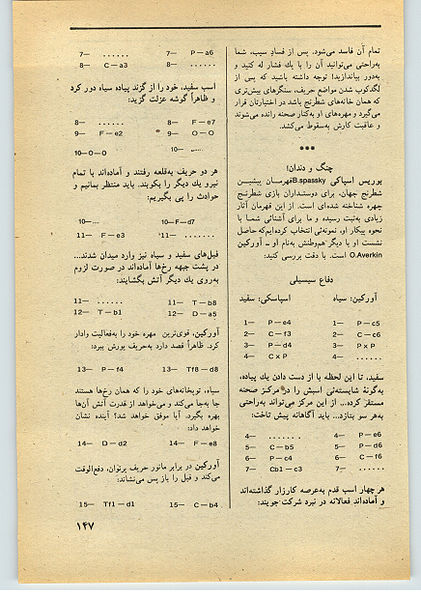 تمام آن فاسد می‌شود. پس از فساد سیب، شما
به‌راحتی می‌توانید آن را با یك فشار له کنید و
به‌دور بیاندازید! توجه داشته باشید که پس از
لگدکوب شدن مواضع حریف، سنگرهای بیش‌تری
که همان خانه‌های شطرنج باشد در اختیارتان قرار
می‌گیرد و مهره‌های او به‌کنار صحنه رانده می‌شوند
و عاقبت کارش به‌سقوط می‌کشد.
•••
چنگ و دندان!
بوریس اسپاکی B.spassky قهرمـان پیشیـن
شطرنج جهان، برای دوستـداران بازی شطرنـج
چهره شناخته شده‌ای است. از این قهرمان آثار
زیادی به‌ثبت رسیده و ما برای آشنائی شمـا با
نحوه بیکار او، نمونه‌ئی انتخاب کرده‌ایم‌که حاصل
نشست او با دیگر هم‌وطنش به‌نام او ـ آورکین
O.Averkin است. با دقت بررسی کنید:
دفاع سیسیلی
آورکین: سیاه اسپاسکی: سفید
1— P—e4 1— P—c5
2— C—f3 2— C—c6
3— P—d4 3— P x P
4— C x P 4— ......
سفید، تا این لحظه با از دست دادن یك پیاده،
به‌گونهٔ شایسته‌ئی اسبش را در مرکـز صحنه
مستقر کرده... از این مرکز می‌تواند به‌راحتی
به‌هر سو بتازد... باید آگاهانه پیش تاخت:
4— ....... 4— P—e6
5— C—b5 5— P—d6
6— P—c4 6— C—f6
7— Cb1—c3 7— ......
هر چهار اسب قدم به‌عرصه کارزار گذاشته‌اند
و آماده‌اند فعالانه در نبرد شرکت جویند:
7— ...... 7— P—a6
8— C—a3 8— ......
اسب سفید، خود را از گزند پیاده سیاه دور کرد
و ظاهراً گوشه عزلت گزید:
8— ...... 8— F—e7
9— F—e2 9— O—O
10—O—O 10— ......
هر دو حریف به‌قلعه رفتند و آماده‌اند با تمام
نیرو یك دیگر را بکوبند. باید منتظر بمانیم و
حوادث را پی بگیریم:
10—... 10—F—d7
11— F—e3 11— ......
فیل‌های سفید و سیاه نیز وارد میدان شدند...
در پشت جبهه رخ‌ها آماده‌اند در صورت لزوم
به‌روی یك دیگر آتش بگشایند:
11— ...... 11— T—b8
12— T—b1 12— D—a5
آورکین، قوی‌ترین مهره خود را به‌فعالیت وادار
کرد. ظاهراً قصد دارد به‌حریف یورش ببرد:
13— P—f4 13— Tf8—d8
سیاه، توپخانه‌های خود را که همان رخ‌ها هستند
جا به‌جا می‌کند و می‌خواهد از قدرت آتش آن‌ها
بهره بگیرد. آیا موفق خواهد شد؟ آینده نشان
خواهد داد:
14— D—d2 14— F—e8
آورکین در برابر مانور حریف پرتوان، دفع‌الوقت
می‌کند و فیل را باز پس می‌نشاند:
15— Tf1—d1 15— C—b4
۱۴۷